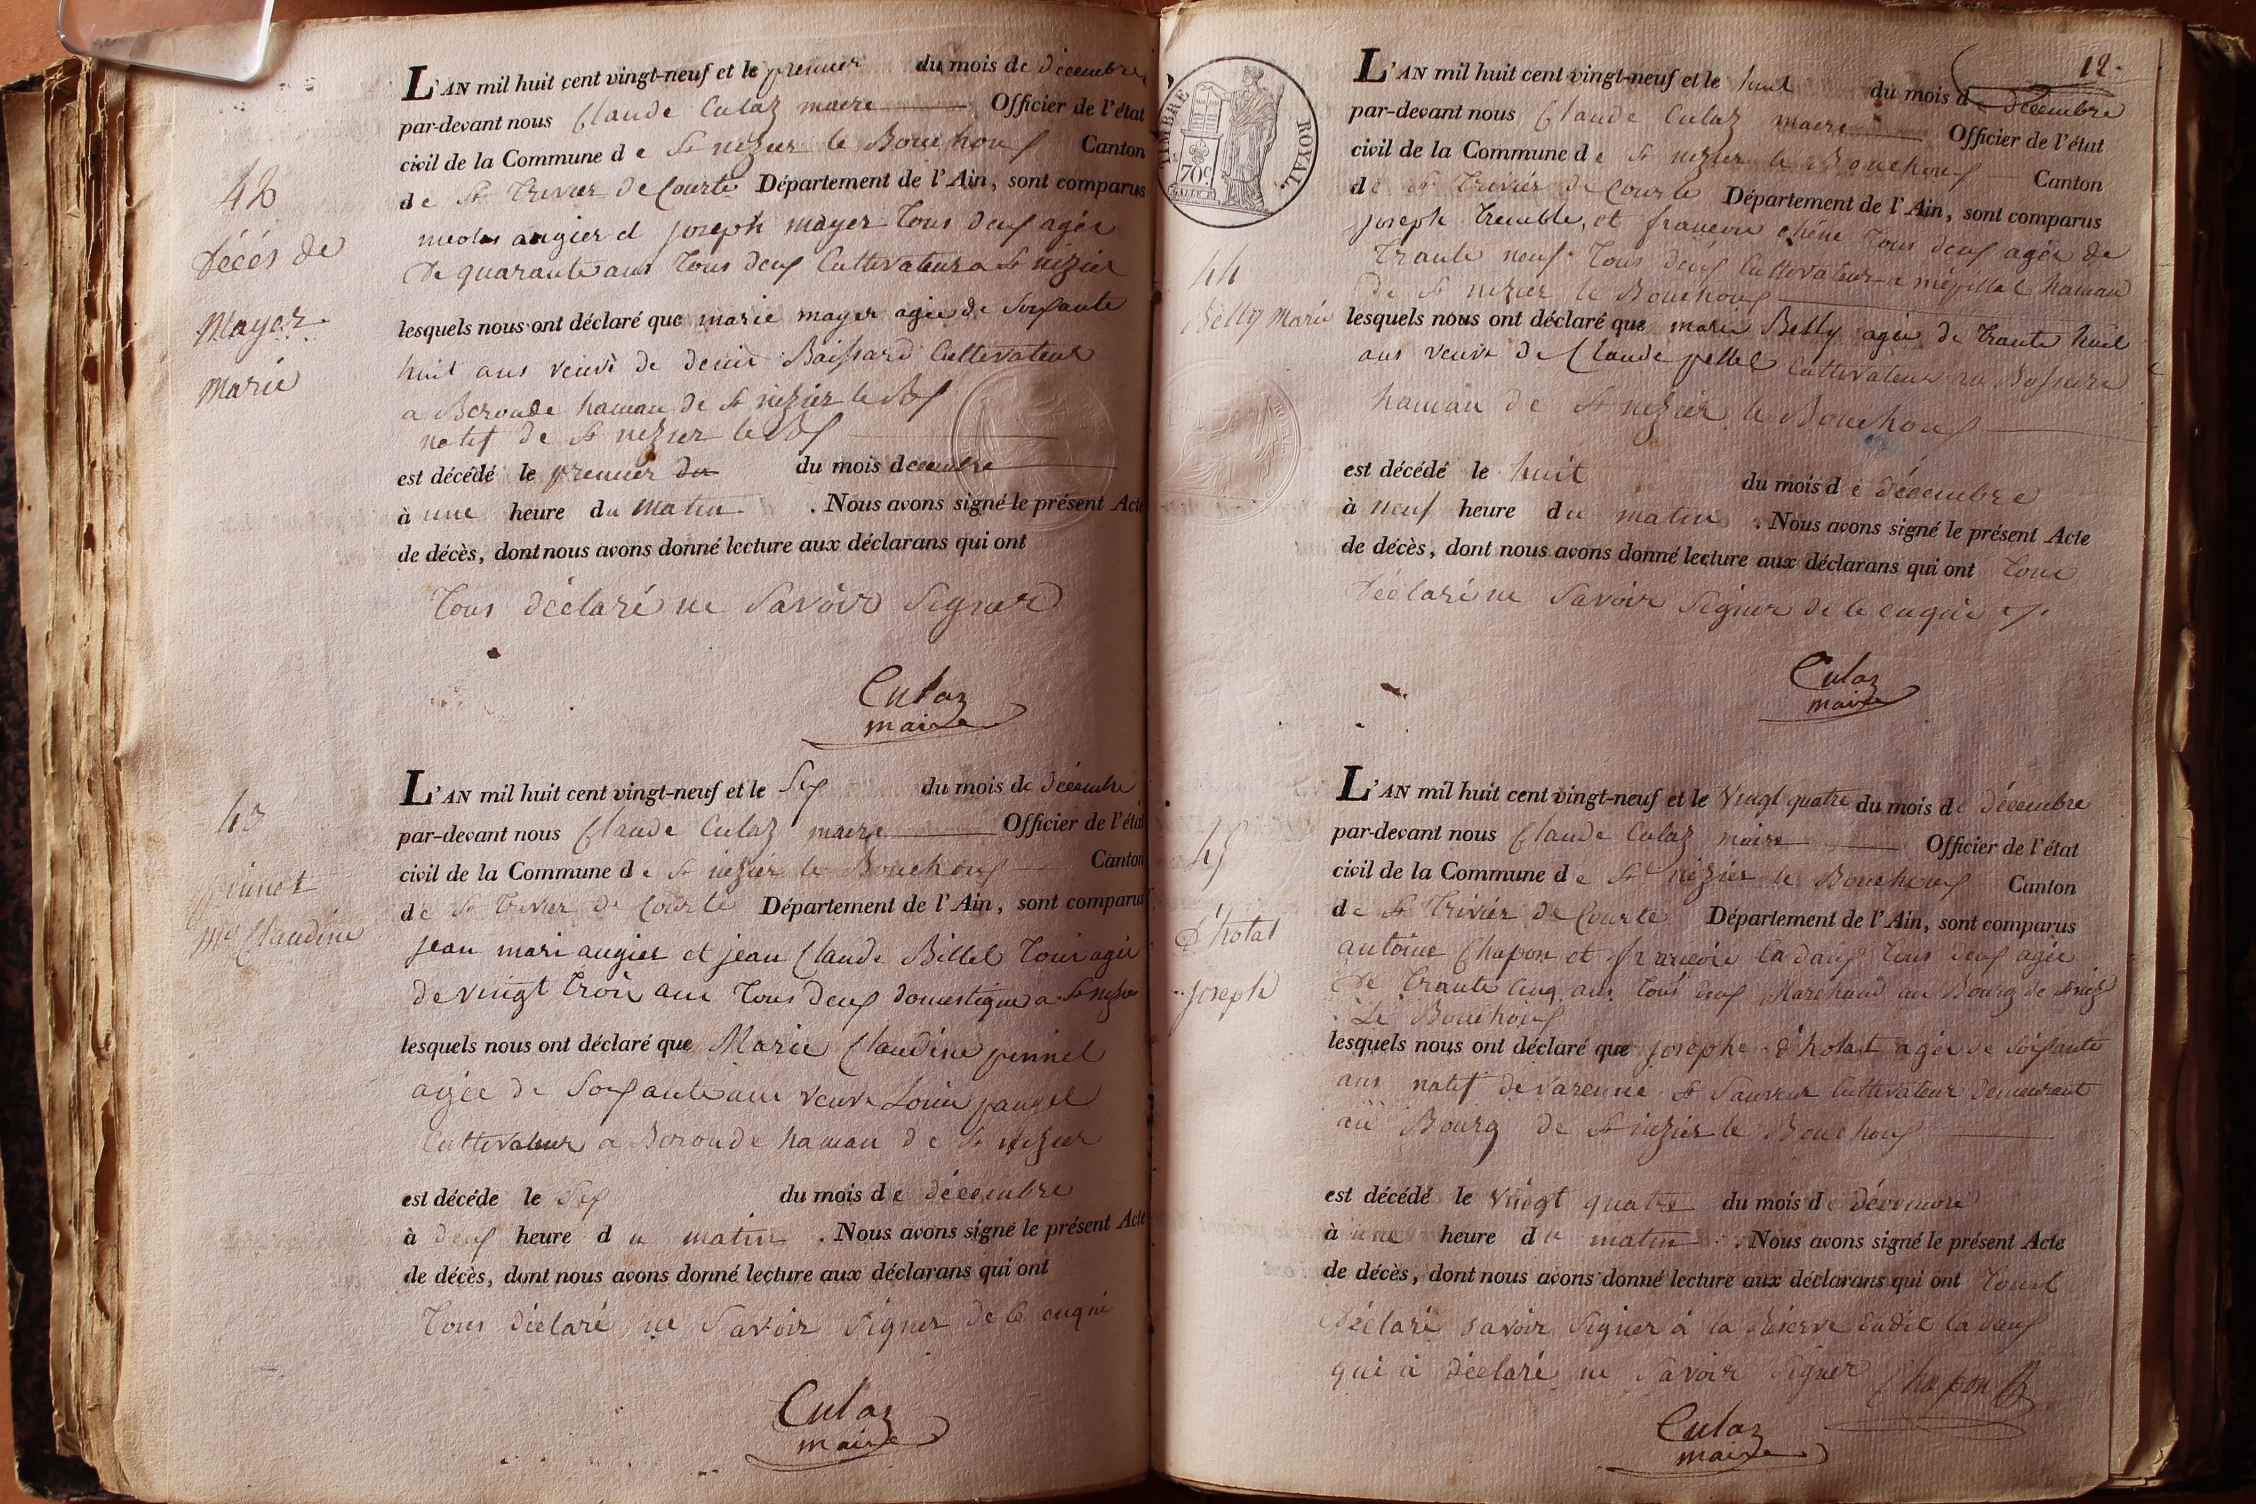 42
Décés de
Mayer
Marie
L'AN mil huit cent vingt-neuf et le premier du mois de décembre
par-devant nous Claude Culaz maire Officier de l'état
civil de la Commune de St nizier le Bouchoux Canton
de St Trivier de Courte Département de l'Ain, sont comparus
nicolas augier et joseph mayer Tous deux agée
De quarante ans Tous deux Cultivateur a St nizier
lesquels nous ont déclaré que marie mayer agée de Soixante
huit ans veuve de denis Boissard Cultivateur
a Beronde hamau de St nizier le Bx
natif de St nizier le Bx
est décédé le premier du du mois decembre
à une heure du matin. Nous avons signé le présent Acte
de décès, dont nous avons donné lecture aux déclarans qui ont
Tous déclaré ne Savoir Signer
Culaz
maire
43
pinnet
Mie Claudine
L'AN mil huit cent vingt-neuf et le Six du mois de décembre
par-devant nous Claude Culaz maire Officier de l'état
civil de la Commune de St nizier le Bouchoux Canton
de St Trivier de Courte Département de l'Ain, sont comparus
jean mari augier et jean Claude Billet Tous agée
de vingt trois ans Tous deux domestique a St nizier
lesquels nous ont déclaré que Marie Claudine pinnet
agée de Soixante ans veuve Louis
Cultivateur a Beronde hamau de St nizier
est décéde le Six du mois de décembre
à deux heure du matin. Nous avons signé le présent Acte
de décès, dont nous avons donné lecture aux déclarans qui ont
Tous déclaré ne Savoir Signer de ce enquie
Culaz
maire
12.
TIMBRE ROYAL.
70c
44
Belly Marie
L'AN mil huit cent vingt-neuf et le huit du mois de décembre
par-devant nous Claude Culaz maire Officier de l'état
civil de la Commune de St nizier le Bouchoux Canton
de St Trivier de Courte Département de l'Ain, sont comparus
joseph Tremble, et francois chêne Tous deux agée de
Trante neuf Tous deux Cultivateur a mépillat hamau
De St nizier le Bouchoux
lesquels nous ont déclaré que marie Belly agée de trante huit
ans veuve de Claude pellet Cultivateur au
hamau de St nizier le Bouchoux
est décédé le huit du mois de décembre
à neuf heure du matin. Nous avons signé le présent Acte
de décès, dont nous avons donné lecture aux déclarans qui ont Tous
Déclaré ne Savoir Signer de ce enquie
Culaz
maire
45
D'hotat
joseph
L'AN mil huit cent vingt-neuf et le Vingt quatre du mois de décembre
par-devant nous Claude Culaz maire Officier de l'état
civil de la Commune de St nizier le Bouchoux Canton
de St Trivier de Courte Département de l'Ain, sont comparus
antoine Chapon et francois Tous deux agée
De Trante Cinq ans Tous deux Marchand au Bourg de St niz
Le Bouchoux
lesquels nous ont déclaré que josephe d'hotat agée de Soixante
ans natif de varenne St Sauveur Cultivateur demeurant
au Bourg de St nizier le Bouchoux
est décédé le vingt quatre du mois de décembre
à une heure du matin. Nous avons signé le présent Acte
de décès, dont nous avons donné lecture aux déclarans qui ont Tous
Déclaré Savoir Signer à la Réserve dudit
qui à déclaré ne Savoir Signer Chapon
Culaz
maire